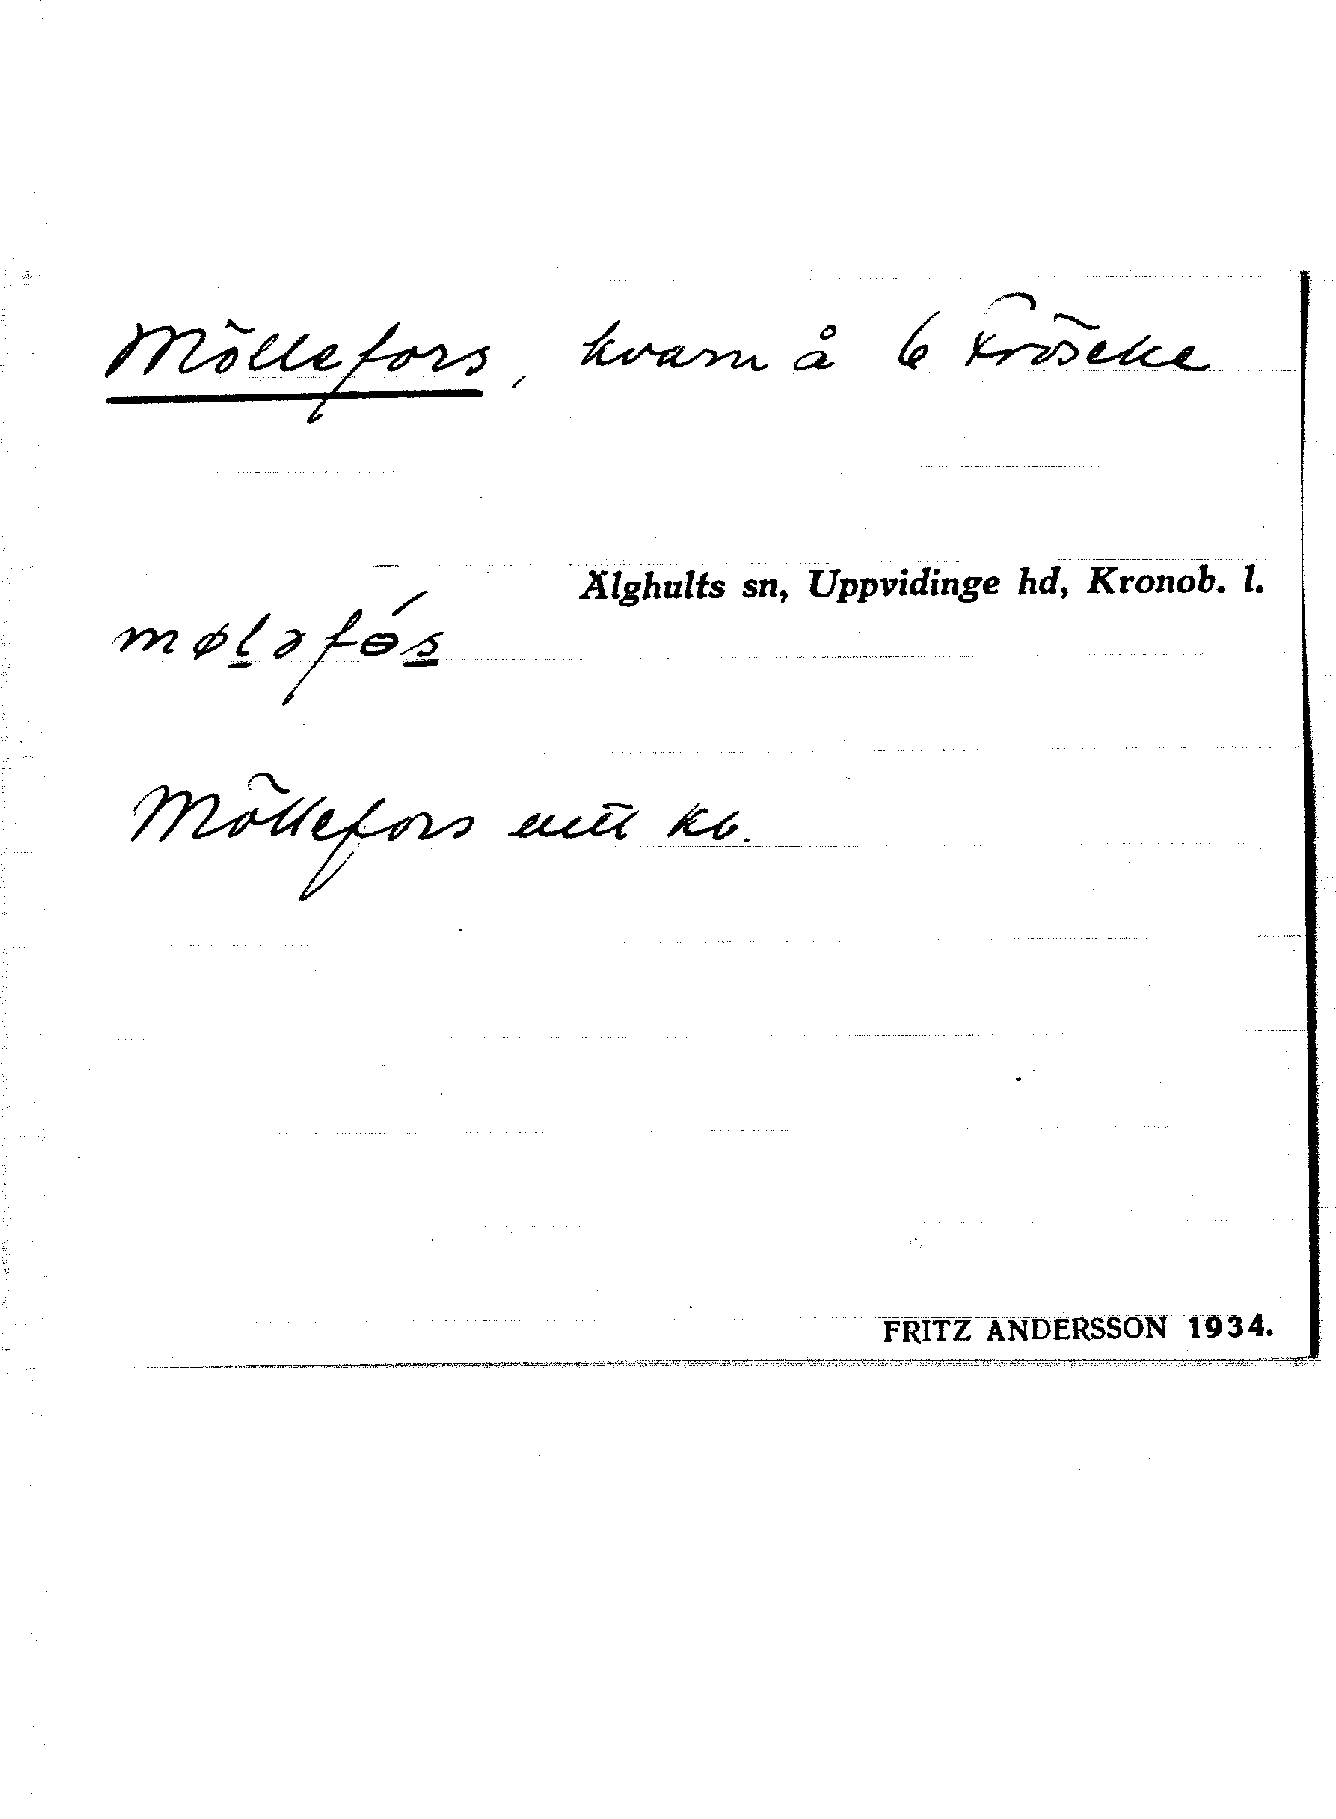 Möllefors, kvarn å 6 Fröseke
Älghults sn, Uppvidinge hd, Kronob. l.
møl̲əfɵ́s̲
Möllefors kb.
FRITZ ANDERSSON 1934.